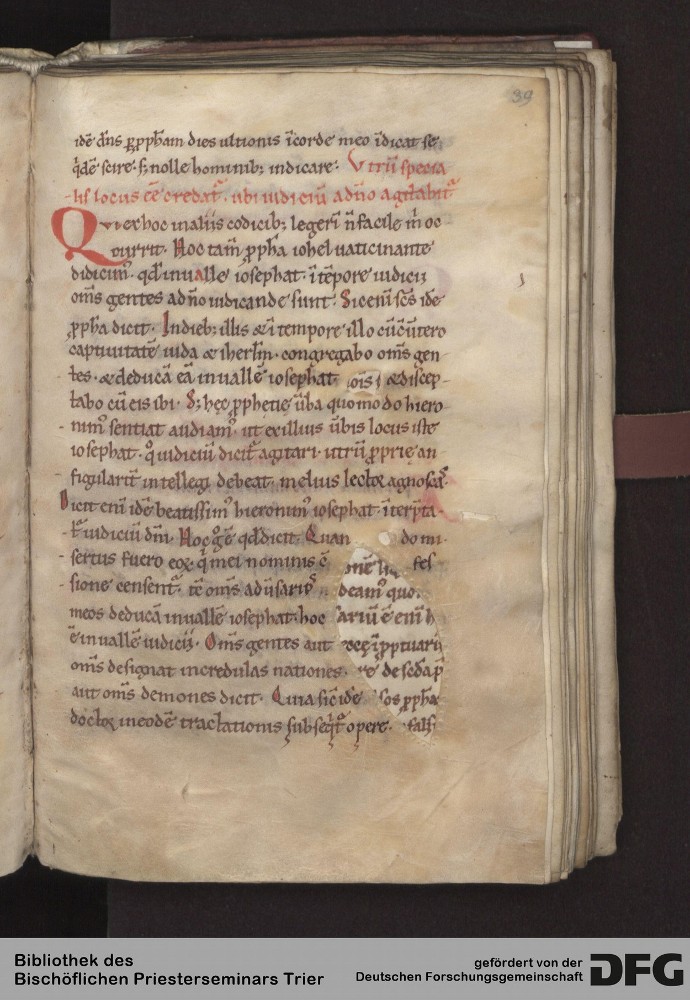 39
idē dn̄s ꝑ ꝓph̄am dies ultionis ī corde meo īdicat se
q̇dē scire · s; nolle hominib; indicare · Vtrū specia
lis locus eē credat᷑ · ubi iudiciū a dn̄o agitabit᷑
Qui ex hoc in aliis codicib; legerī n̄ facile m̄ oc
currit · Hoc tam̄ ꝓph̄a iohel uaticinante
didicim᷒ · qd̄ in ualle iosephat · ī tēpore iudicii
om̄s gentes a dn̄o iudicande sunt · Sic enī sc̄s idē
ꝓph̄a dicit · In dieb; illis & ī tempore illo cū cūuertero
captiuitatē iuda & iherl̄m · congregabo om̄s gen
tes · & deducā eā in uallē iosephat & discep
tabo cū eis ibi · S; hęc ꝓphetie ūba quomodo hiero
nim᷒ sentiat audiam᷒ · ut ex illius ūbis locus iste
iosephat · q̊ iudiciū dicit᷑ agitari · utrū ꝓprię an
figuralit̄ intellegi debeat · melius lector agnoscat ·
Dicit enī idē beatissim᷒ hieronim᷒ iosephat · īterp̄ta
t᷑ iudiciū dn̄i · Hoc g̊ ē qd̄ dicit · Quan do mi
sertus fuero eor̄ · q̇ mei nominis c̄ fes
sione censent᷑ · tc̄ om̄s aduersarios
meos deducā in uallē iosephat · hoc
ē in uallē iudicii · Om̄s gentes aut
om̄s designat incredulas nationes ·
aut om̄s demones dicit · Quia sic̄ idē
doctor in eodē tractationis subseq̇t᷑ opere ·
Bibliothek des
Bischöflichen Priesterseminars Trier
gefördert von der
Deutschen Forschungsgemeinschaft
DFG